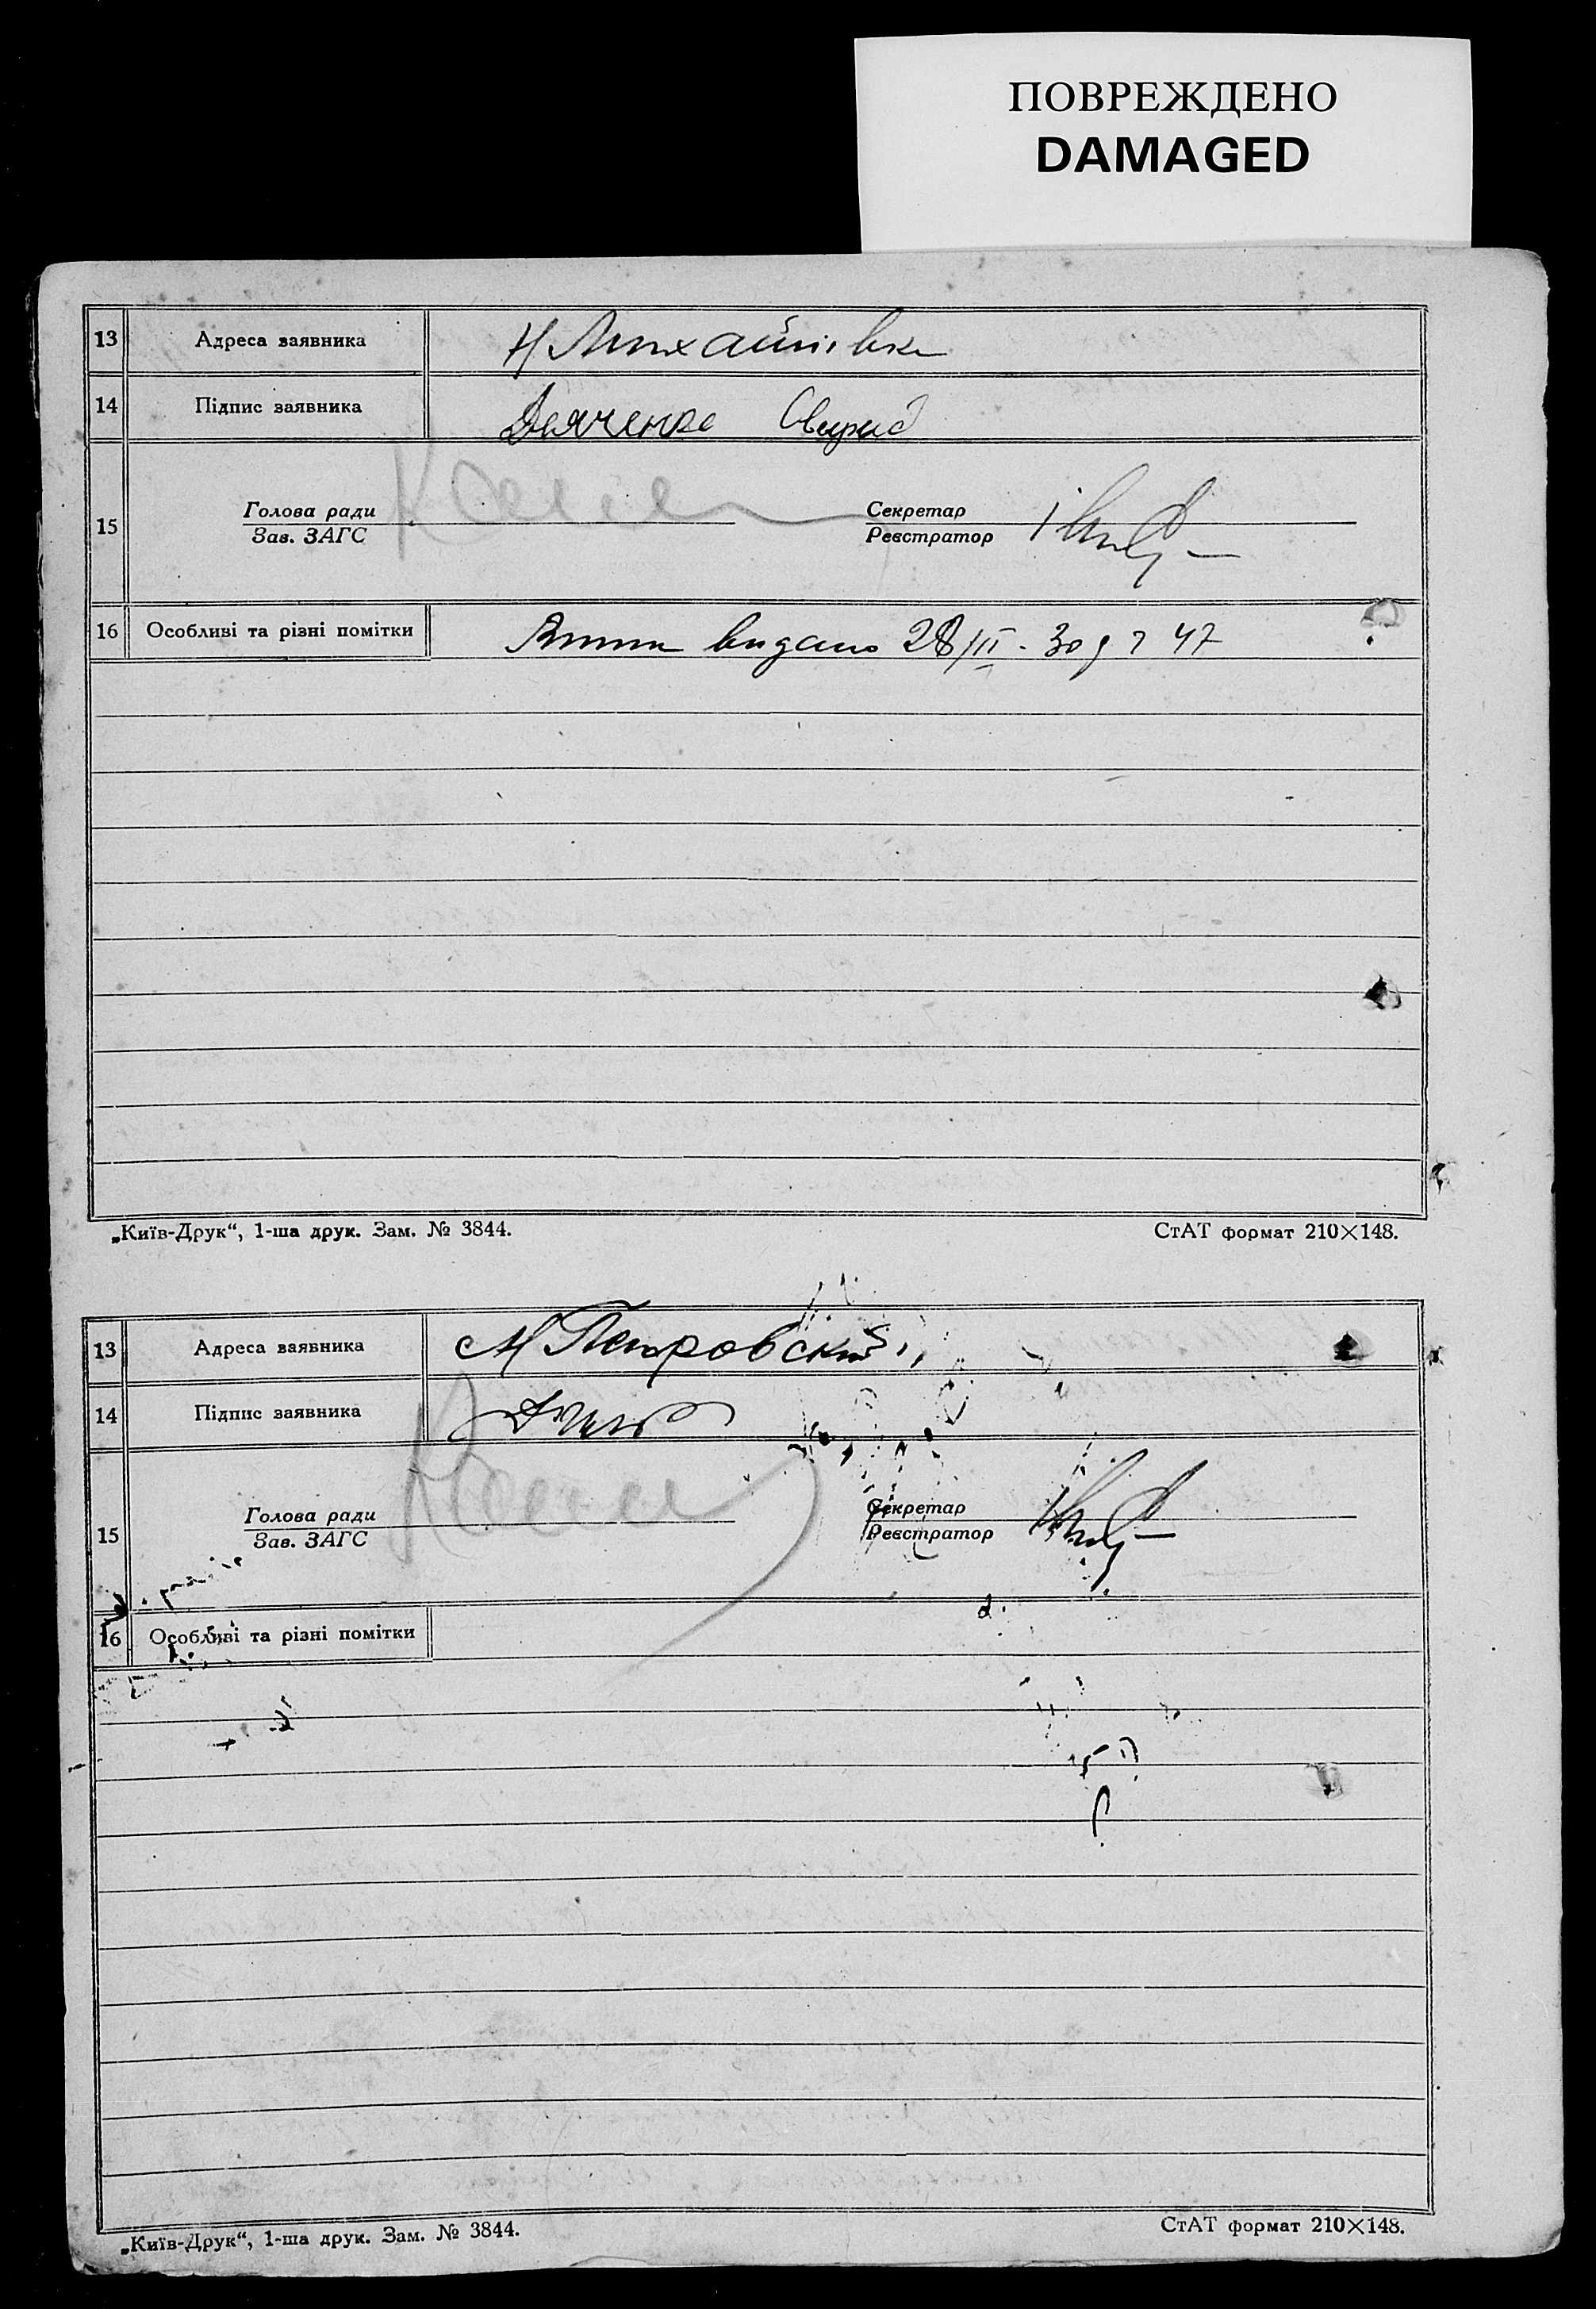 ПОВРЕЖДЕНО
DAMAGED
13 Адреса заявника Н Михайлівка
14 Підпис заявника Дяченко Свирид
15 Голова ради Секретар
Зав. ЗАГС Реєстратор
16 Особливі та різні помітки видано 28/II - 30 р 47
„Київ-Друк“, 1-ша друк. Зам. № 3844. СтАТ формат 210×148.
13 Адреса заявника М Петровский
14 Підпис заявника
15 Голова ради Секретар
Зав. ЗАГС Реєстратор
16 Особливі та різні помітки
„Київ-Друк“, 1-ша друк. Зам. № 3844. СтАТ формат 210×148.